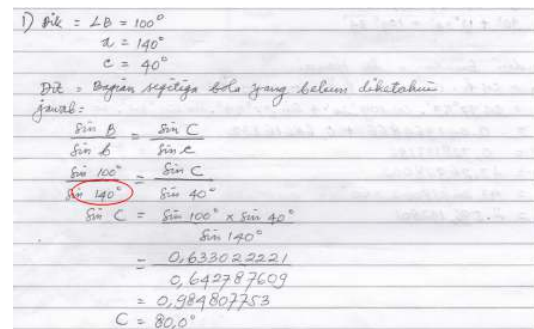 1) Dik = ∠B = 100°
a = 140°
c = 40°
Dit = Bagian segitiga bola yang belum diketahui
jawab :
Sin B / Sin b = Sin C / Sin c
Sin 100° / Sin 140° = Sin C / Sin 40°
Sin C = Sin 100° x Sin 40° / Sin 140°
= 0,633022221 / 0,642787609
= 0,984807753
C = 80,0°